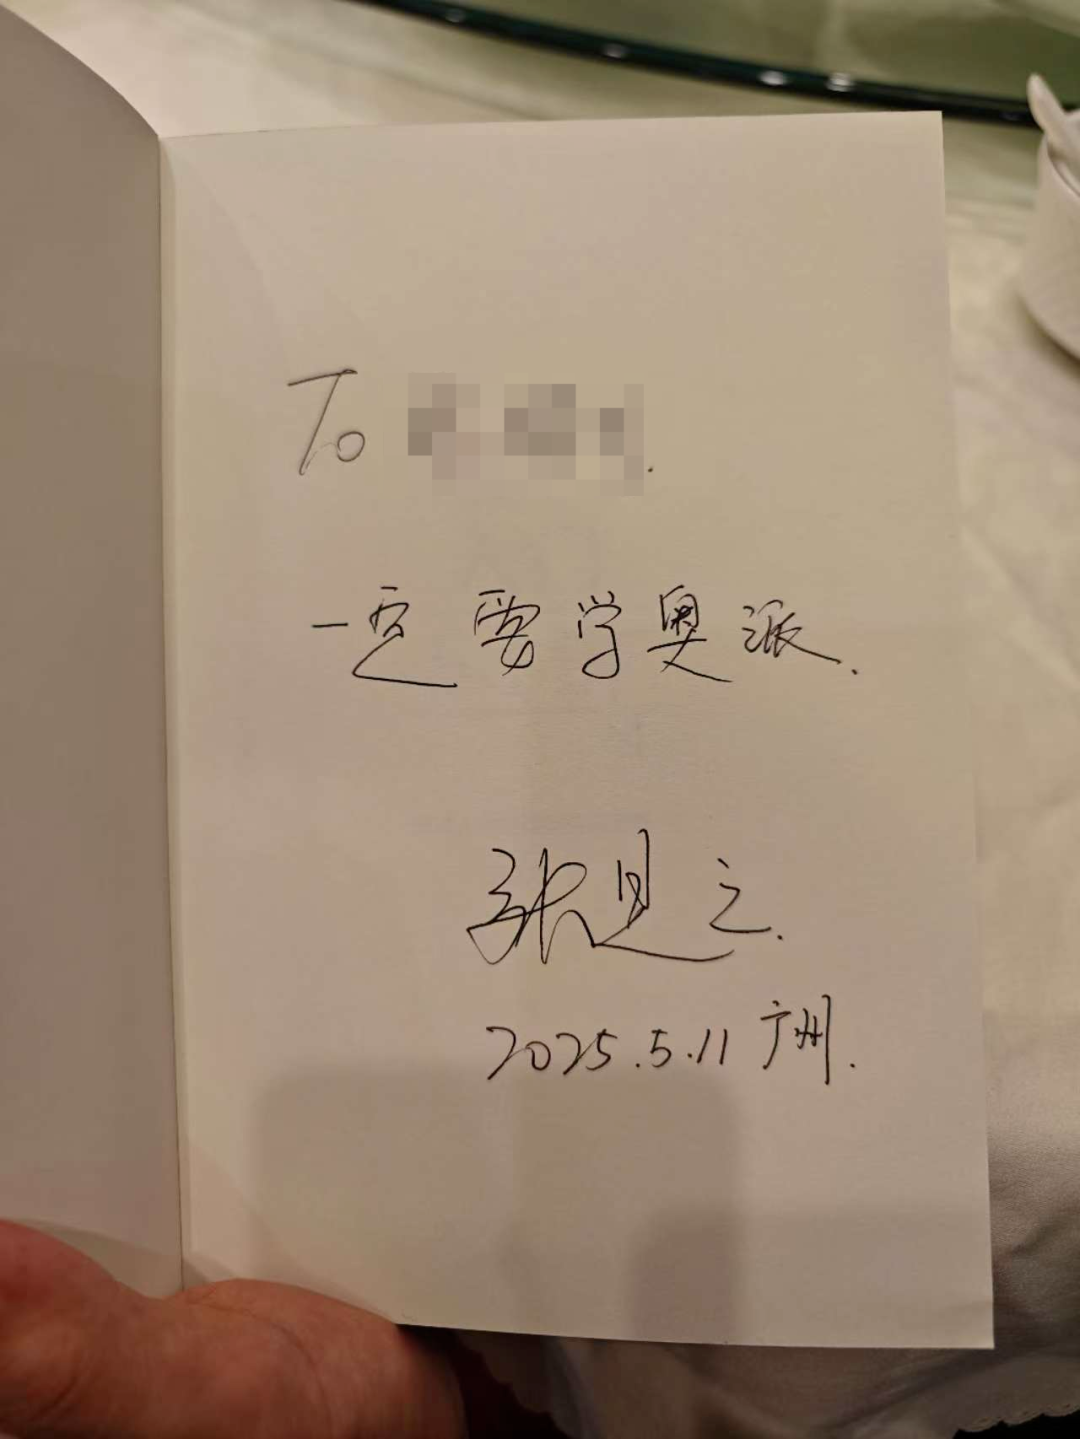 To
一定要学奥派.
张是之.
2025.5.11 广州.